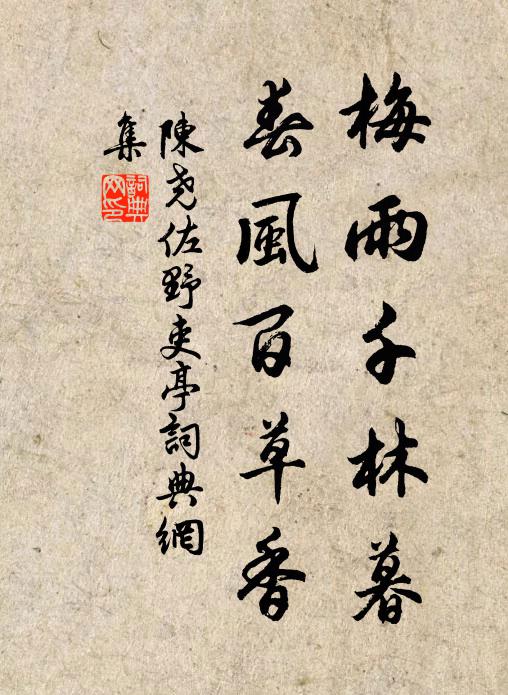 梅雨千林暮
春風百草香
陳堯佐野吏亭詞典網
集
詞典
网印